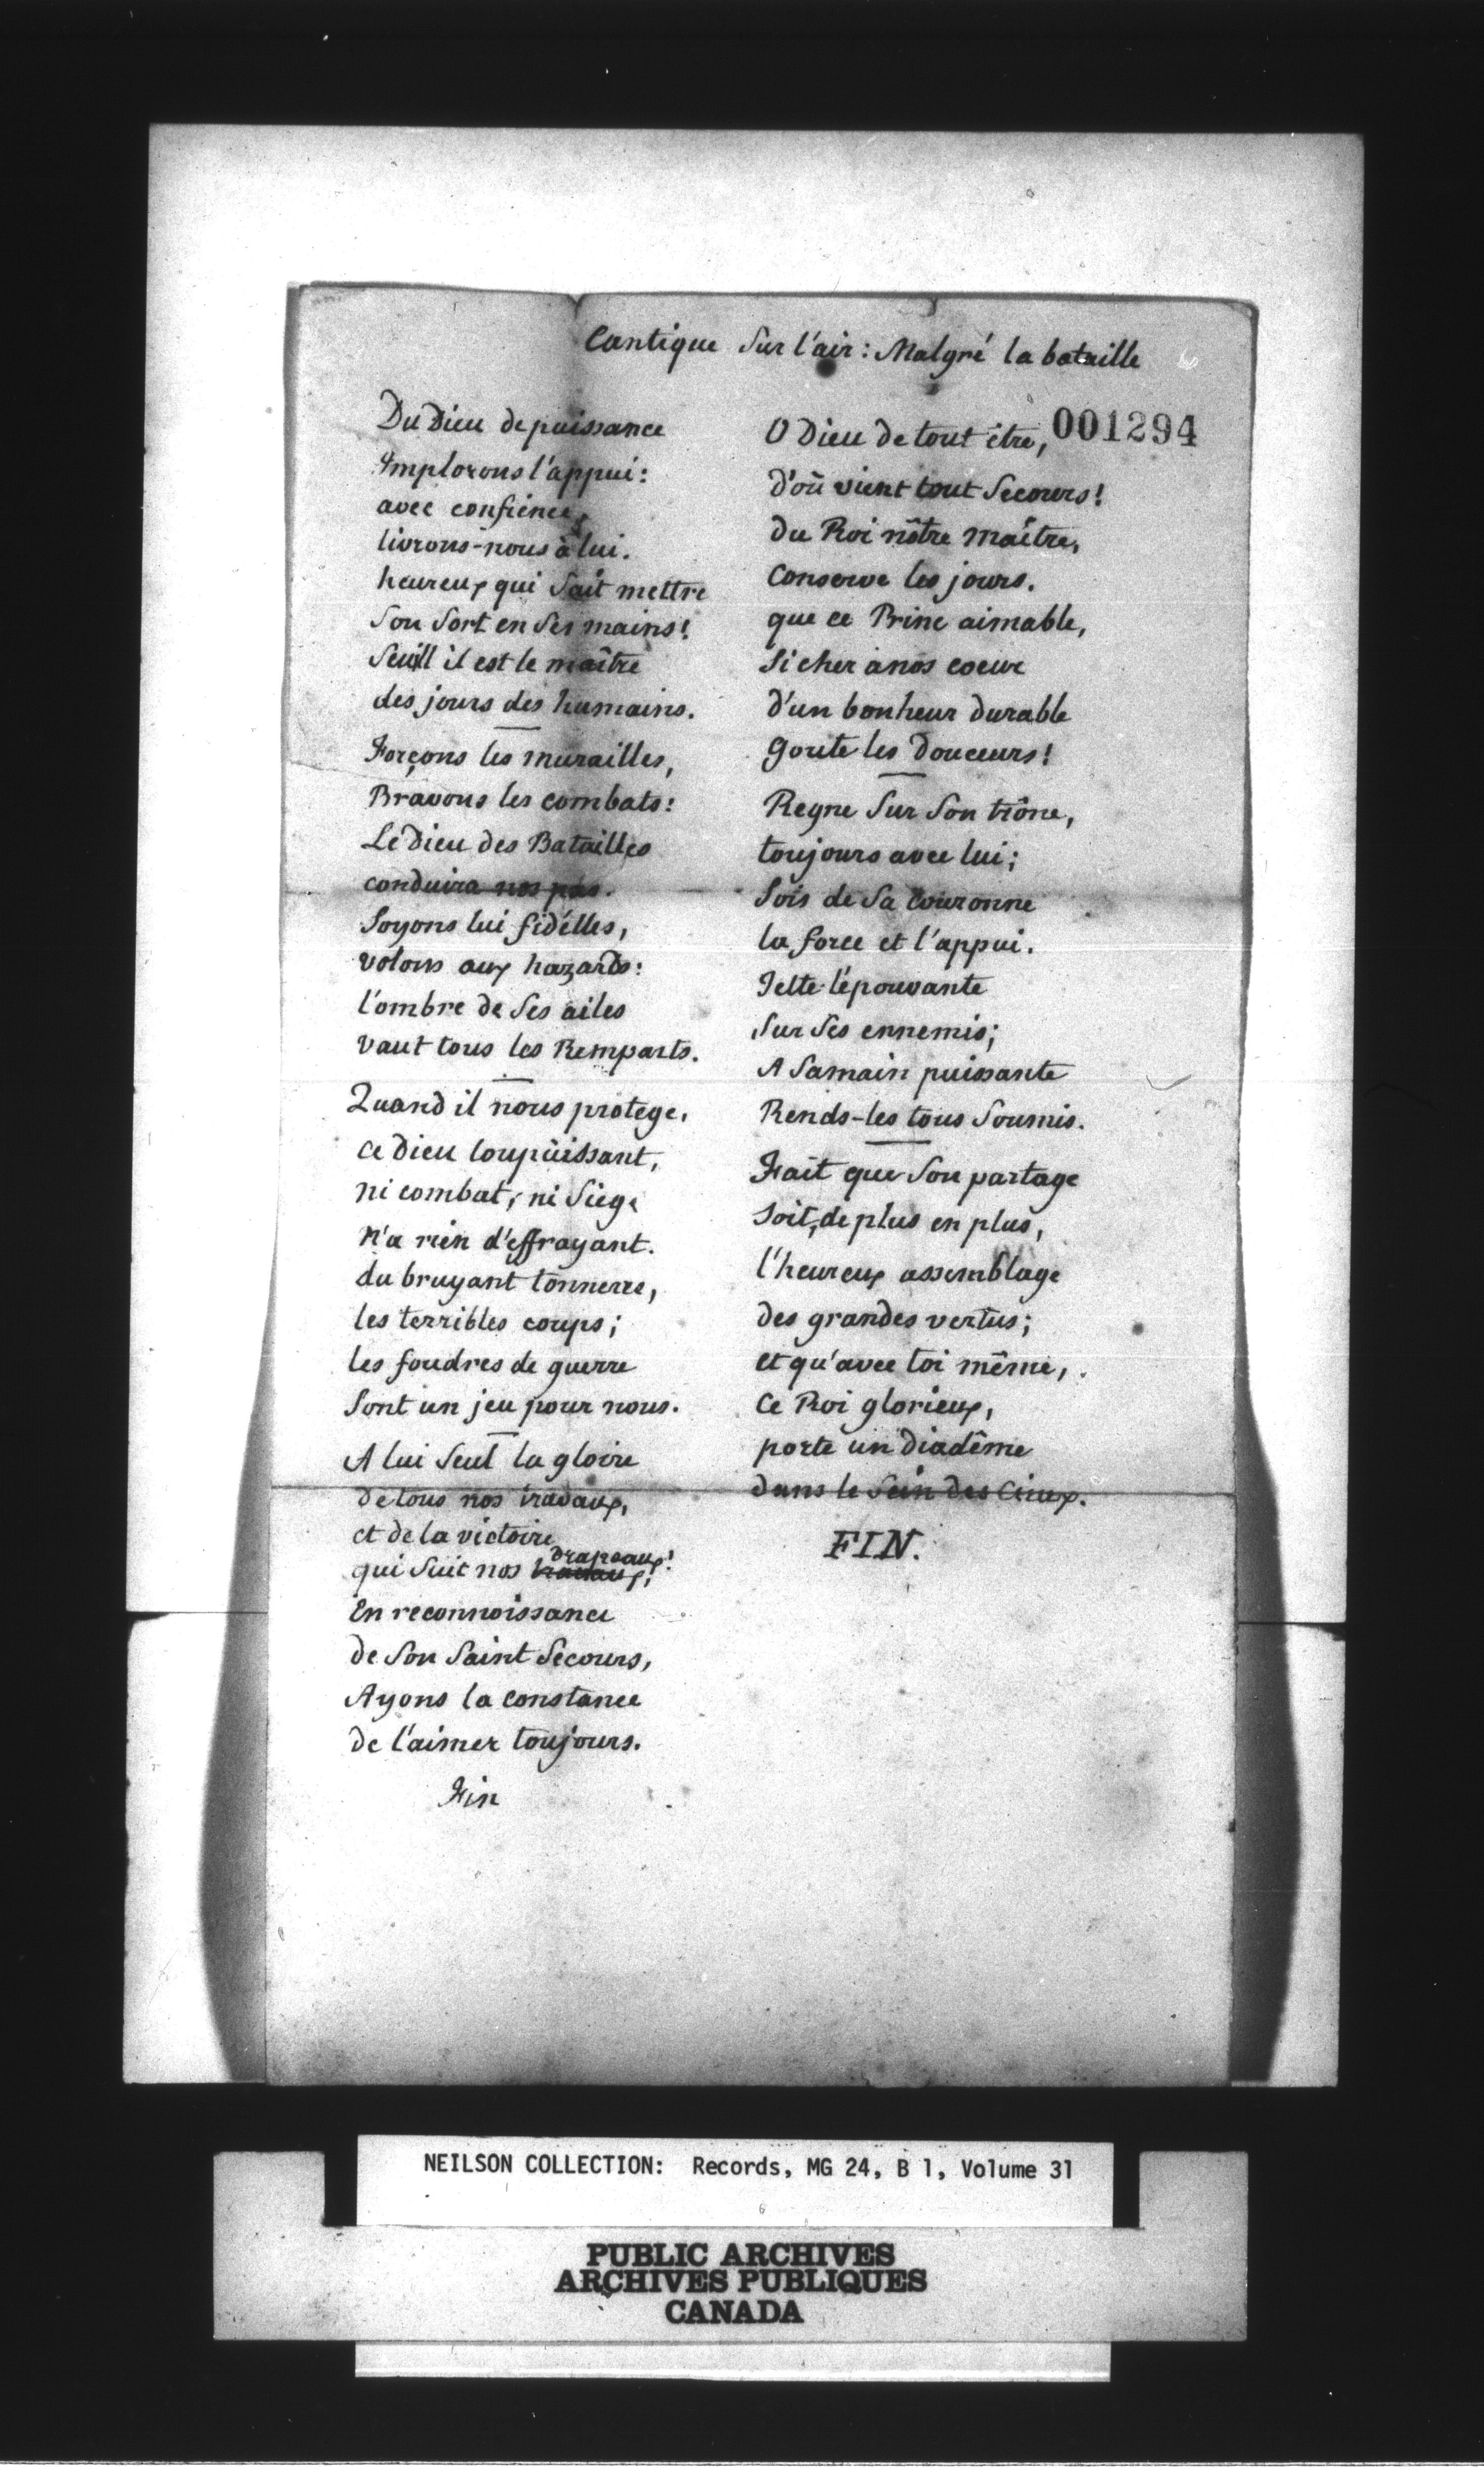 Cantique Sur l'air: Malgré la bataille
Du Dieu de puissance
Implorons l'appui:
avec confience,
livrons-nous à lui.
heureux qui Sait mettre
Son Sort en Ses mains!
Seul il est le maître
des jours des humains.
Forçons les murailles,
Bravons les combats:
Le Dieu des Batailles
conduira nos pas.
Soyons lui fidélles,
volons aux hazards:
l'ombre de Ses ailes
vaut tous les Remparts.
Quand il nous protege,
ce Dieu toupüissant,
ni combat, ni Siege
N'a rien d'effrayant.
du bruyant tonnerre,
les terribles coups;
les foudres de guerre
Sont un jeu pour nous.
A lui Seul la gloire
de tous nos travaux,
et de la victoire
qui Suit nos travaux, drapeaux!
En reconnoissance
de Son Saint Secours,
Ayons la constance
de l'aimer toujours.
Fin
O Dieu de tout être,
001294
d'où vient tout Secours!
du Roi nôtre maître,
Conserve les jours.
que ce Princ aimable,
Si cher a nos coeur
d'un bonheur durable
Goute les Douceurs!
Regne Sur Son trône,
toujours avec lui;
Sois de Sa Couronne
la force et l'appui.
Jette l'épouvante
Sur Ses ennemis;
A Samain puissante
Rends-les tous Soumis.
Fait que Son partage
Soit, de plus en plus,
l'heureux assemblage
des grandes vertus;
et qu'avec toi même,
Ce Roi glorieux,
porte un diadême
dans le Sein des Cieux.
FIN.
NEILSON COLLECTION: Records, MG 24, B 1, Volume 31
PUBLIC ARCHIVES
ARCHIVES PUBLIQUES
CANADA